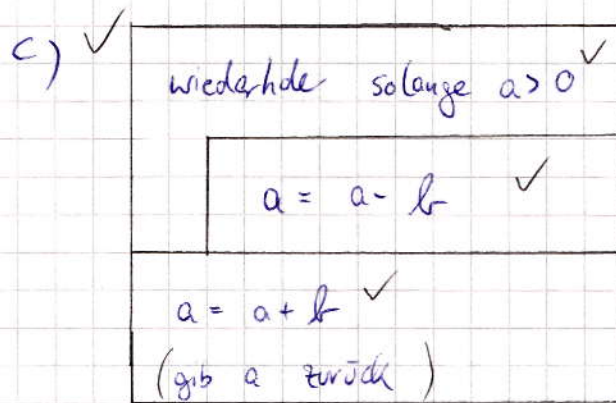 c) ✓
wiederhole solange a > 0 ✓
a = a - b ✓
a = a + b ✓
(gib a zurück)